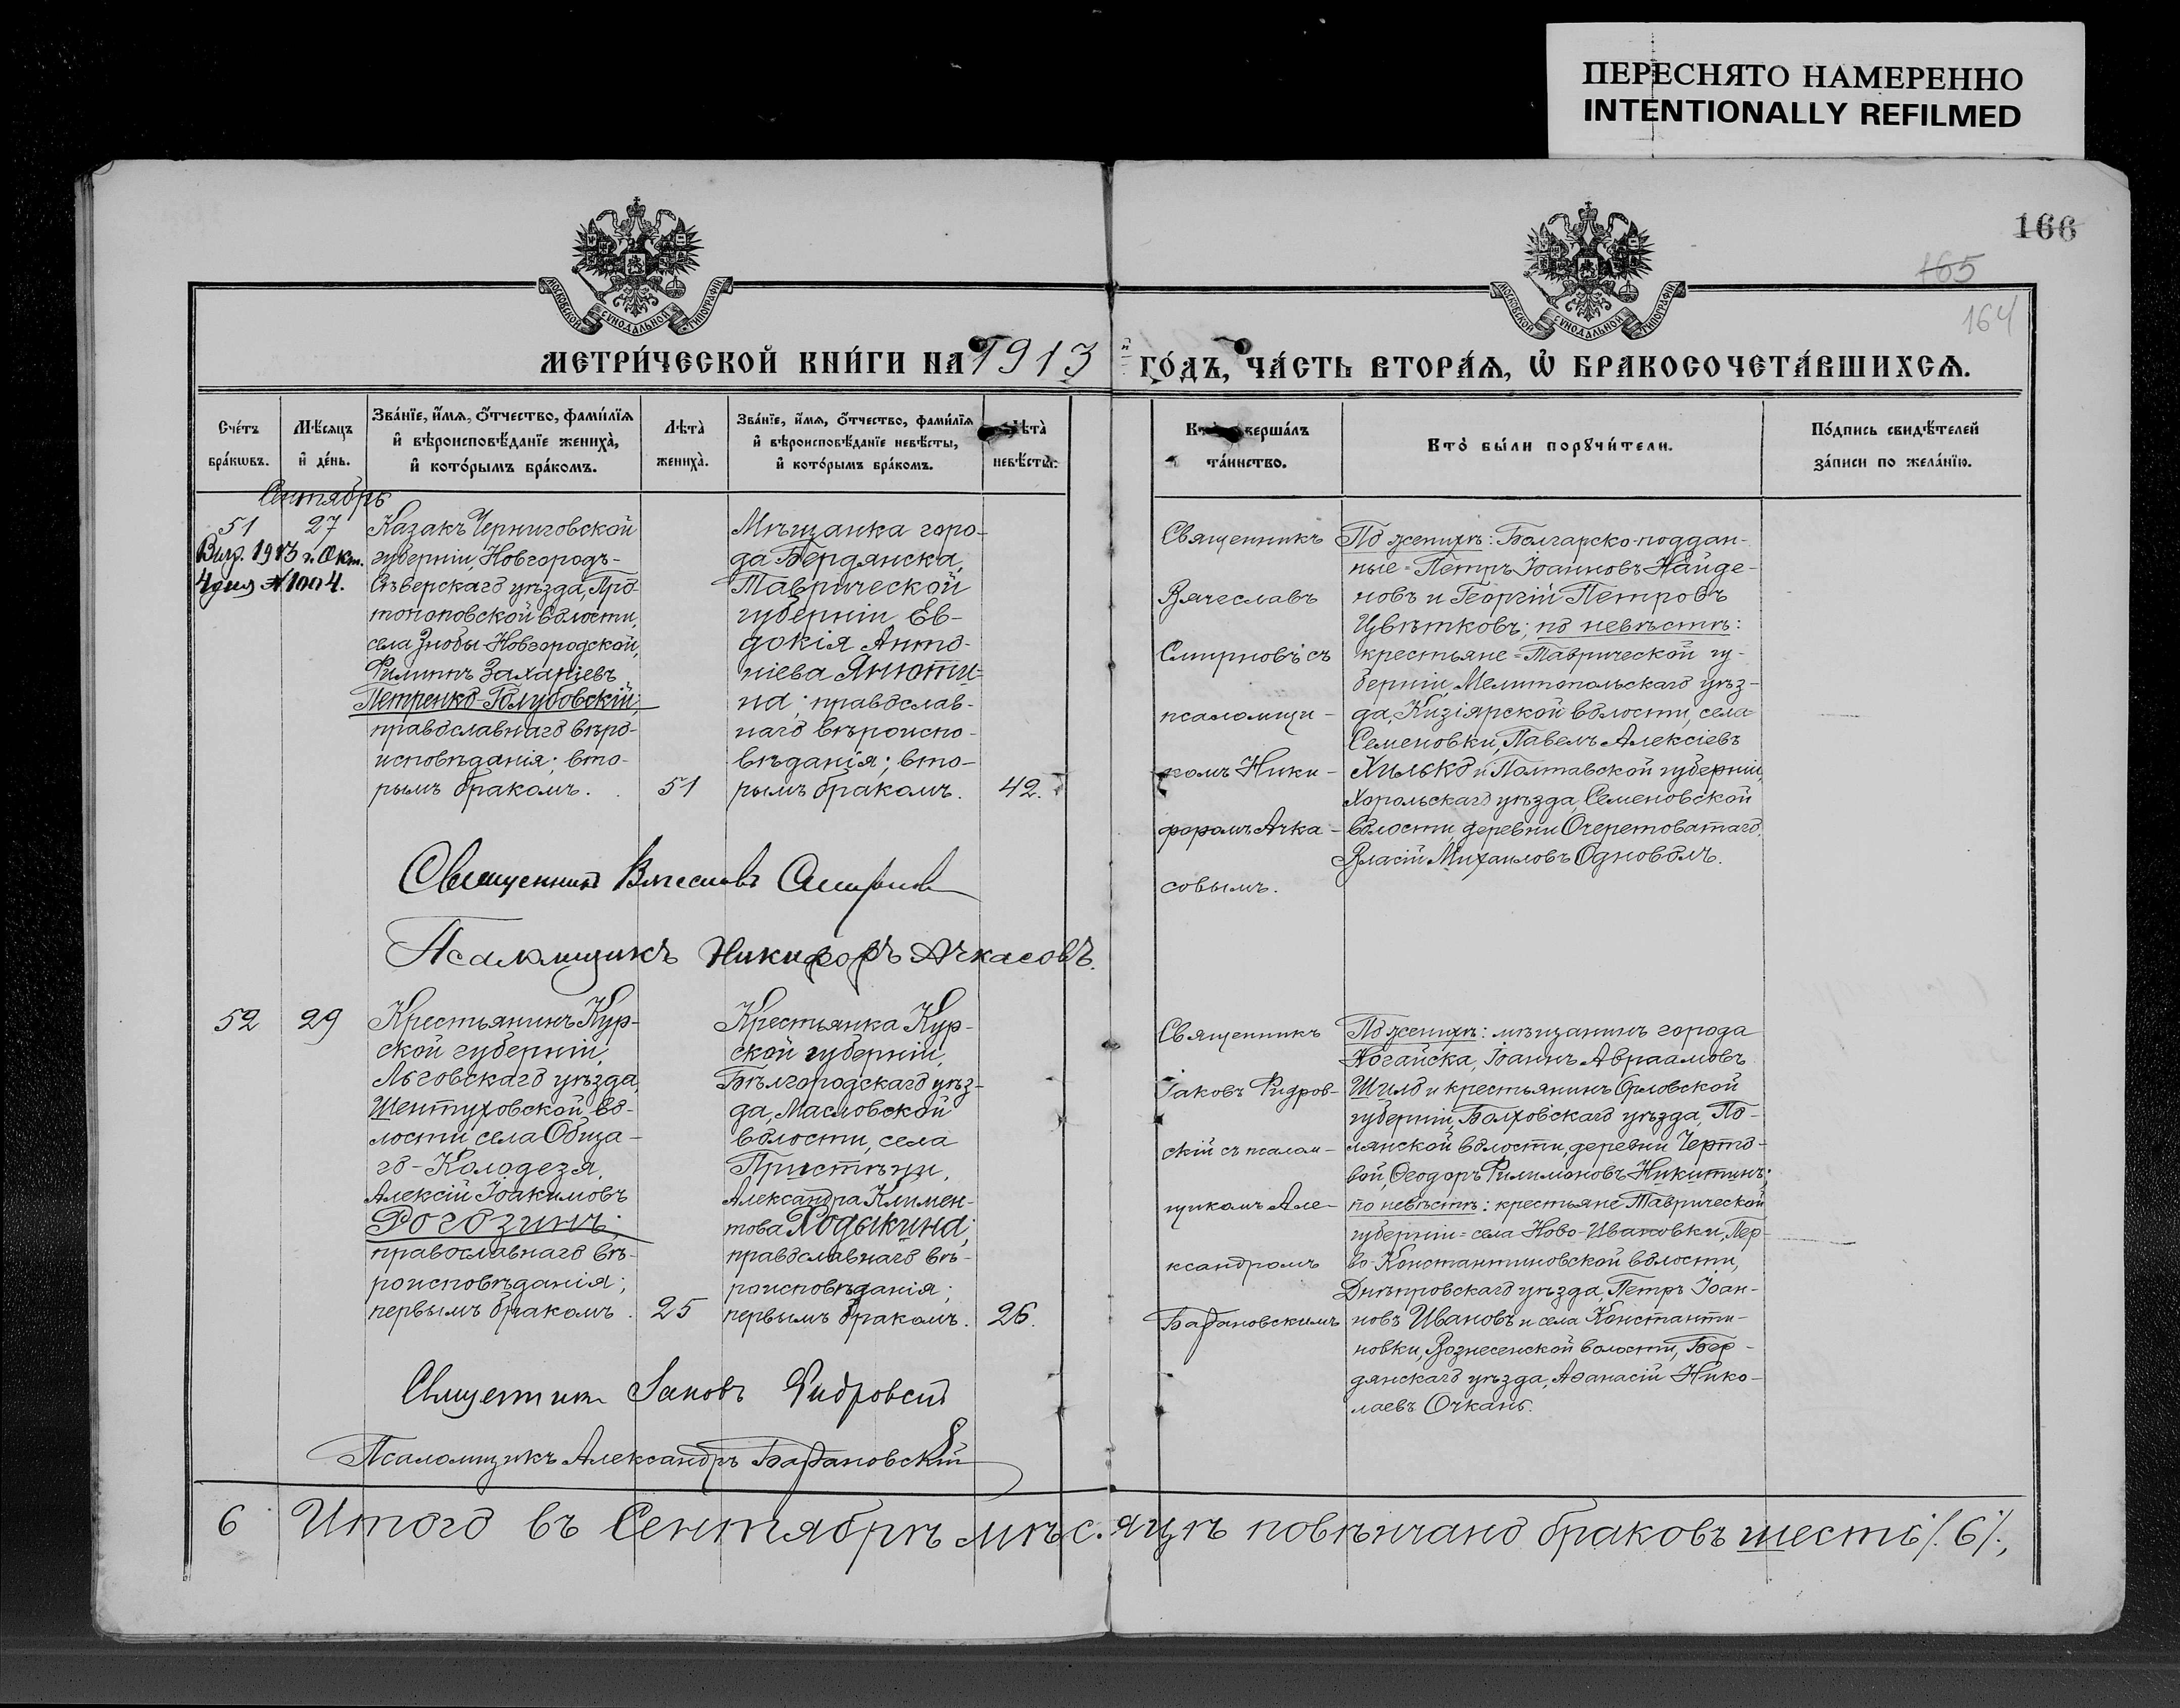 ПЕРЕСНЯТО НАМЕРЕННО
INTENTIONALLY REFILMED
166
165
164
МОСКОВСКОЙ СѴНОДАЛЬНОЙ ТИПОГРАФІИ
МОСКОВСКОЙ СѴНОДАЛЬНОЙ ТИПОГРАФІИ
МЕТРИ́ЧЕСКОЙ КНИ́ГИ НА 1913 й ГО́ДЪ, ЧА́СТЬ ВТОРА́Ѧ, Ѡ҆ БРАКОСОЧЕТА́ВШИХСѦ.
Сче́тъ
бра́кѡвъ.
Мѣ́сѧцъ
и҆ де́нь.
Зва́нїе, и҆́мѧ, ѻ҆́тчество, фами́лїѧ
и҆ вѣроисповѣ́данїе жениха̀,
и҆ кото́рымъ бра́комъ.
Лѣта̀
жениха̀.
Зва́нїе, и҆́мѧ, ѻ҆́тчество, фами́лїѧ
и҆ вѣроисповѣ́данїе невѣ́сты,
и҆ кото́рымъ бра́комъ.
Лѣта̀
невѣ́сты.
Кто̀ соверша́лъ
та́инство.
Кто̀ бы́ли порꙋчи́тели.
По́дпись свидѣ́телей
за́писи по жела́нїю.
Сентябрь
51
27
Выд. 1913 г. Окт.
4 дня № 1004.
Казакъ Черниговской
губерніи, Новгородъ-
Сѣверскаго уѣзда, Про-
топоповской волости,
села Знобы-Новгородской,
Филиппъ Захаріевъ
Петренко-Голубовскій;
православнаго вѣро-
исповѣданія; вто-
рымъ бракомъ.
51
Мѣщанка горо-
да Бердянска,
Таврической
губерніи Ев-
докія Анто-
ніева Анюти-
на; православ-
наго вѣроиспо-
вѣданія; вто-
рымъ бракомъ.
42.
Священникъ
Вячеславъ
Смирновъ съ
псаломщи-
комъ Ники-
форомъ Ачка-
совымъ.
По женихѣ: Болгарско-поддан-
ные = Петръ Іоанновъ Найде-
новъ и Георгій Петровъ
Цвѣтковъ; по невѣстѣ:
крестьяне = Таврической гу-
берніи, Мелитопольскаго уѣз-
да, Кизіярской волости, села
Семеновки, Павелъ Алексіевъ
Хилько и Полтавской губерніи,
Хорольскаго уѣзда, Семеновской
волости, деревни Очеретоватаго,
Власій Михаиловъ Одноволъ.
Священникъ Вячеславъ Смирновъ
Псаломщикъ Никифоръ Ачкасовъ.
52
29
Крестьянинъ Кур-
ской губерніи,
Льговскаго уѣзда,
Шептуховской во-
лости, села Обща-
го-Колодезя,
Алексій Іоакимовъ
Рогозинъ;
православнаго вѣ-
роисповѣданія;
первымъ бракомъ.
25
Крестьянка Кур-
ской губерніи,
Бѣлгородскаго уѣз-
да, Масловской
волости, села
Пристѣни,
Александра Климен-
това Ходыкина;
православнаго вѣ-
роисповѣданія;
первымъ бракомъ.
26.
Священникъ
Іаковъ Ридров-
скій съ псалом-
щикомъ Але-
ксандромъ
Барановскимъ
По женихѣ: мѣщанинъ города
Ногайска, Іоаннъ Авраамовъ
Шило и крестьянинъ Орловской
губерніи, Болховскаго уѣзда, По-
лянской волости, деревни Черто-
вой, Ѳеодоръ Филимоновъ Никитинъ;
по невѣстѣ: крестьяне Таврической
губерніи = села Ново-Ивановки, Пер-
во-Константиновской волости,
Днѣпровскаго уѣзда, Петръ Іоан-
новъ Ивановъ и села Константи-
новки, Вознесенской волости, Бер-
дянскаго уѣзда, Аѳанасій Нико-
лаевъ Очкань.
Священникъ Іаковъ Ридровскій
Псаломщикъ Александръ Барановскій
6 Итого въ Сентябрѣ мѣсяцѣ повѣнчано браковъ шесть /.6/.,